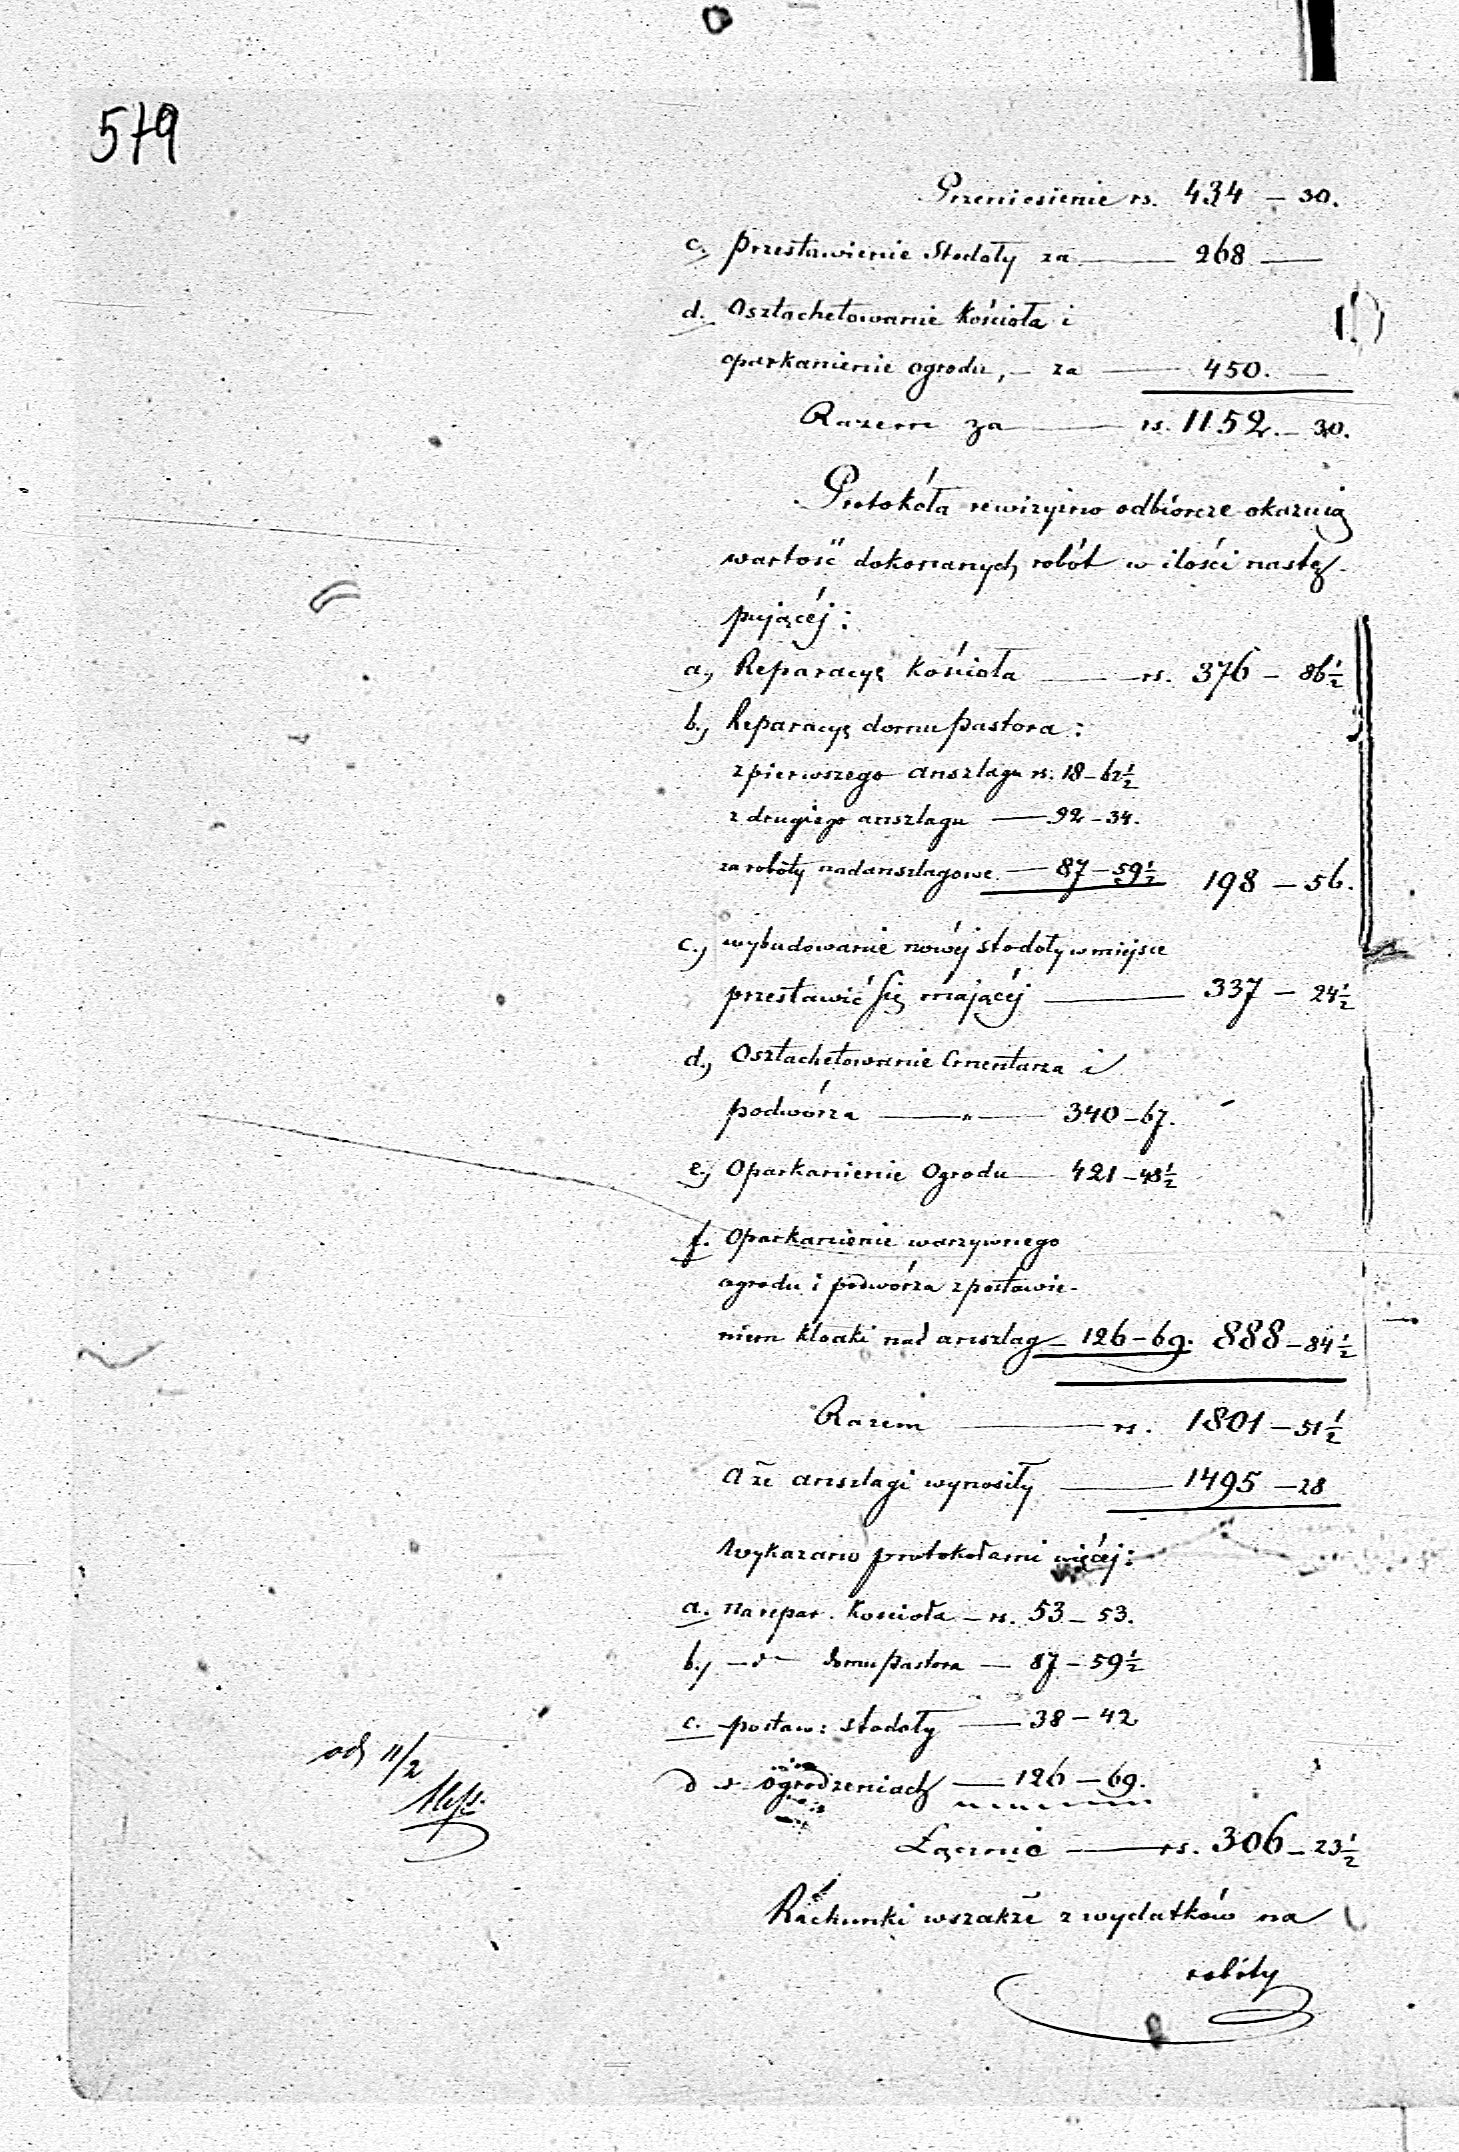 579
Przeniesienie rs. 434 – 30.
c. przestawienie Stodoły za — 268 —
d. Osztachetowanie Kościoła i
oparkanienie ogrodu, – za — 450. —
Razem za — rs. 1152. – 30.
Protokóła rewizyjno odbiorcze okazują
wartość dokonanych robót w ilości nastę-
pującéj:
a., Reparacyę Kościoła — rs. 376 – 86½
b., Reparacyę domu pastora:
z pierwszego anszlagu rs. 18 – 62½
z drugiego anszlagu — 92 – 34.
za roboty nadanszlagowe. — 87 – 59½ 198 – 56.
c., wybudowanie nowéj stodoły w miejsce
przestawić się mającéj — 337 – 24½
d., Osztachetowanie Cmentarza i
podwórza — „ — 340 – 67.
e., Oparkanienie Ogrodu — 421 – 48½
f. Oparkanienie warzywnego
ogrodu i podwórza z postawie-
niem kloaki nad anszlag – 126 – 69. 888 – 84½
Razem — rs. 1801 – 51½
A że anszlagi wynosiły — 1495 – 28
Wykazano protokołami więcéj:
a. na repar. Kościoła – rs. 53 – 53.
b., – d – domu pastora — 87 – 59½
c. postaw: stodoły — 38 – 42
d ogrodzeniach — 126 – 69.
Łącznie — rs. 306 – 23½
Rachunki wszakże z wydatków na
roboty
11/2